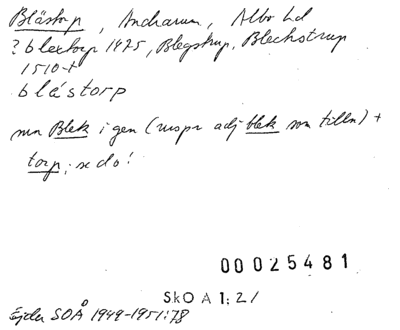 Blästorp, Andrarum, Albo hd
? blextorp 1425, Blegstrup, Blechstrup
1510-t
blástorp
mn Blek i gen (urspr adj blek som tilln) +
torp; se do!
00025481
SkO A 1:21
Ejder SOÅ 1949-1951:78